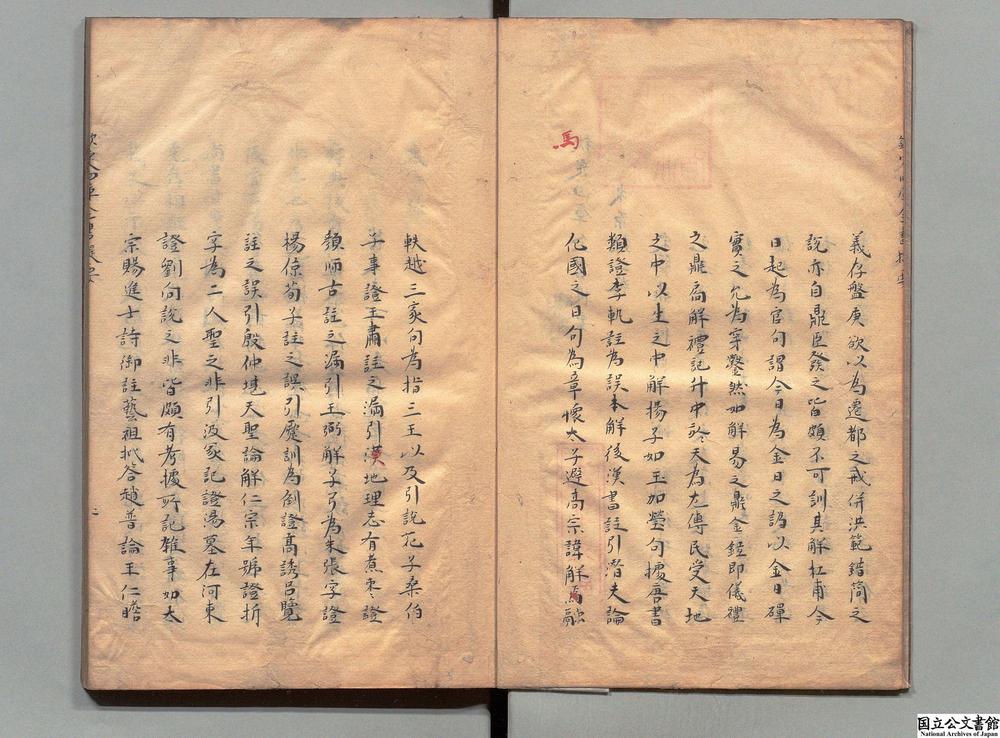 義存盤庚欲以為遷都之戒併洪範錯簡之
說亦自鼎臣發之皆頗不可訓其解杜甫今
日起為官句謂今日為金日之譌以金日磾
實之尤為穿鑿然如解易之鼎金鉉即儀禮
之鼎扃解禮記升中於天為左傳民受天地
之中以生之中解揚子如玉如瑩句據唐書
類證李軌註為誤本解後漢書註引潛夫論
化國之日句為章懷太子避高宗諱解馬融
馬
軼越三家句為指三王以及引說苑子桑伯
子事證王肅註之漏引漢地理志有煮棗證
顏師古註之漏引王弼解子弓為朱張字證
楊倞荀子註之誤引蹇訓為倒證高誘呂覽
註之誤引殷仲堪天聖論解仁宗年號證折
字為二人聖之非引汲冢記證湯墓在河東
證劉向說之非皆頗有考據所記雜事如太
宗賜進士詩御註藝祖批答趙普論王仁瞻
二
国立公文書館
National Archives of Japan